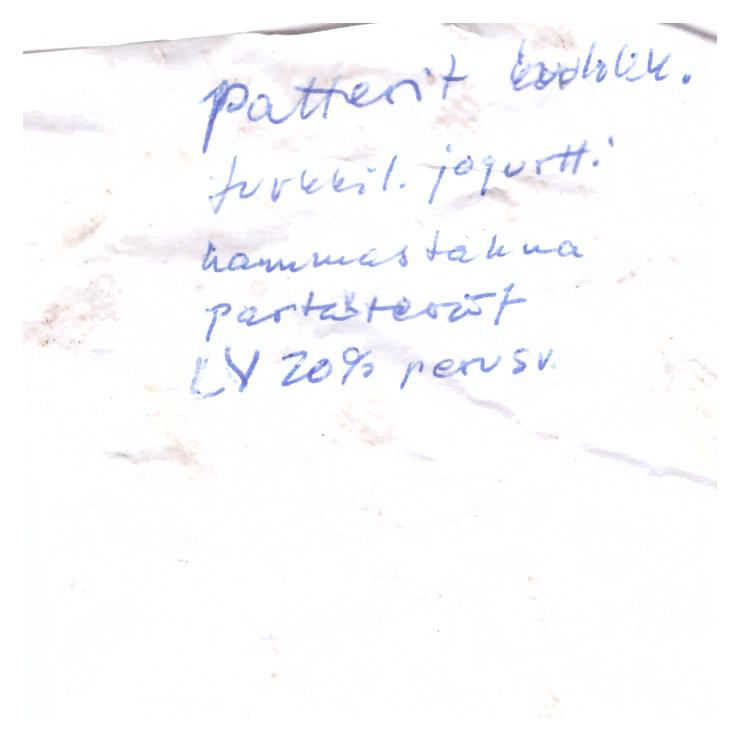 patterit
turkkil. jogurtti
hammastahna
partaterät
LV 20% perusv.